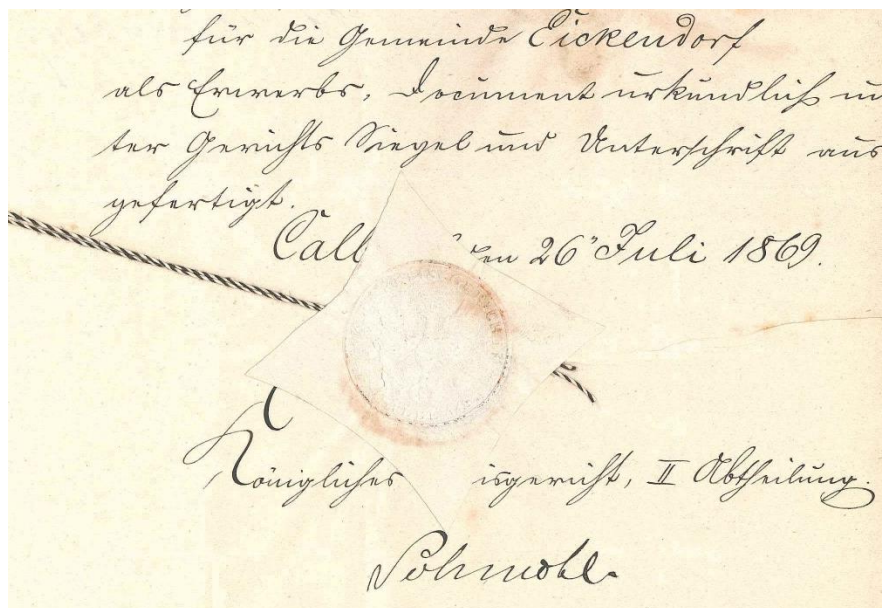 für die Gemeinde Eickendorf
als Erwerbs, Document urkundlich un
ter Gerichts Siegel und Unterschrift aus
gefertigt.
Calb den 26 Juli 1869.
Königliches isgericht, II Abtheilung.